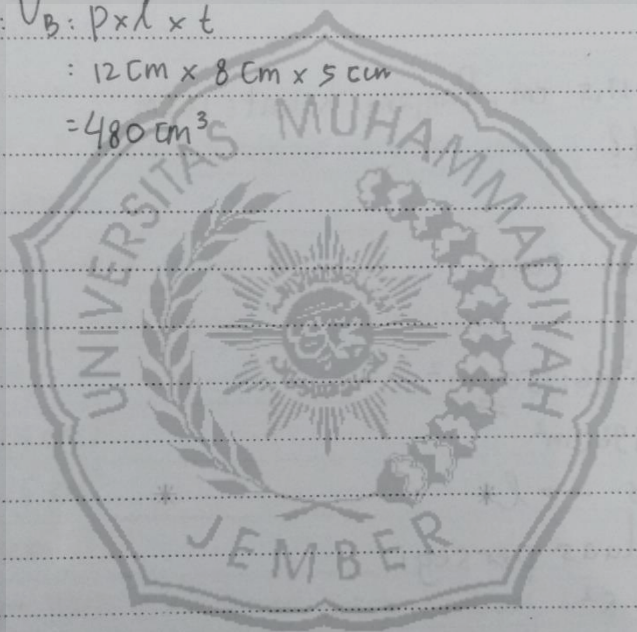 : VB : p x l x t
: 12 Cm x 8 Cm x 5 cm
= 480 cm³
UNIVERSITAS MUHAMMADIYAH
* JEMBER *